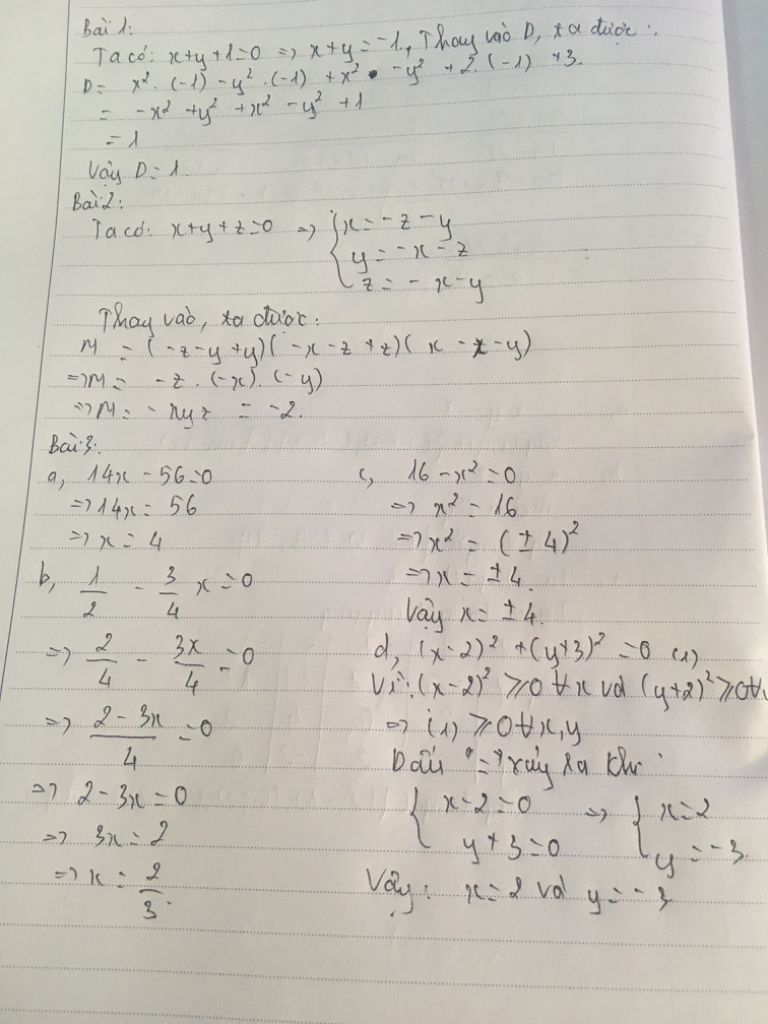 Bài 1:
Ta có: x+y+1=0 => x+y=-1, Thay vào D, ta được:
D= x². (-1) - y². (-1) + x² - y² + 2. (-1) +3.
= -x² +y² +x² - y² +1
= 1
Vậy D=1.
Bài 2:
Ta có: x+y+z=0 => { x=-z-y
y=-x-z
z=-x-y
Thay vào, ta được:
M = (-z-y+y)(-x-z+z)(x-x-y)
=>M= -z. (-x). (-y)
=>M= -xyz = -2.
Bài 3:
a, 14x - 56=0
=>14x= 56
=>x= 4
b, 1/2 - 3/4 x=0
=> 2/4 - 3x/4 =0
=> (2-3x)/4 =0
=> 2-3x=0
=> 3x=2
=>x= 2/3.
c, 16-x²=0
=> x²=16
=>x²= (±4)²
=>x= ±4.
Vậy x= ±4.
d, (x-2)² +(y+3)² =0 (1)
Vì: (x-2)² ≥0 ∀x và (y+2)² ≥0∀
=> (1) ≥0∀x,y
Dấu "=" xảy ra khi
{ x-2=0 => { x=2
y+3=0 y=-3
Vậy: x=2 và y=-3